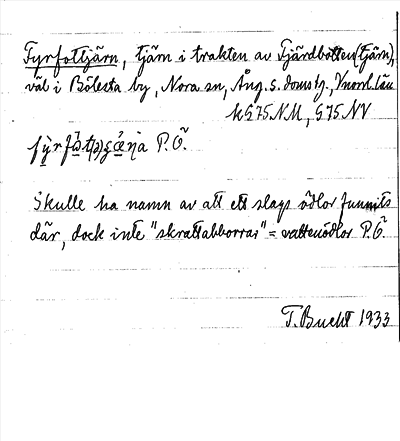 Fyrfottjärn, tjärn i trakten av Fjärdbotten (tjärn),
väl i Bölesta by, Nora sn, Ång. s. doms tg., Vnorrl. län
k G75 NM, G75 NV
P.Ö.
Skulle ha namn av att ett slags ödlor funnits
där, dock inte "skrattabborrar" = vattenödlor P.Ö.
T. Bucht 1933